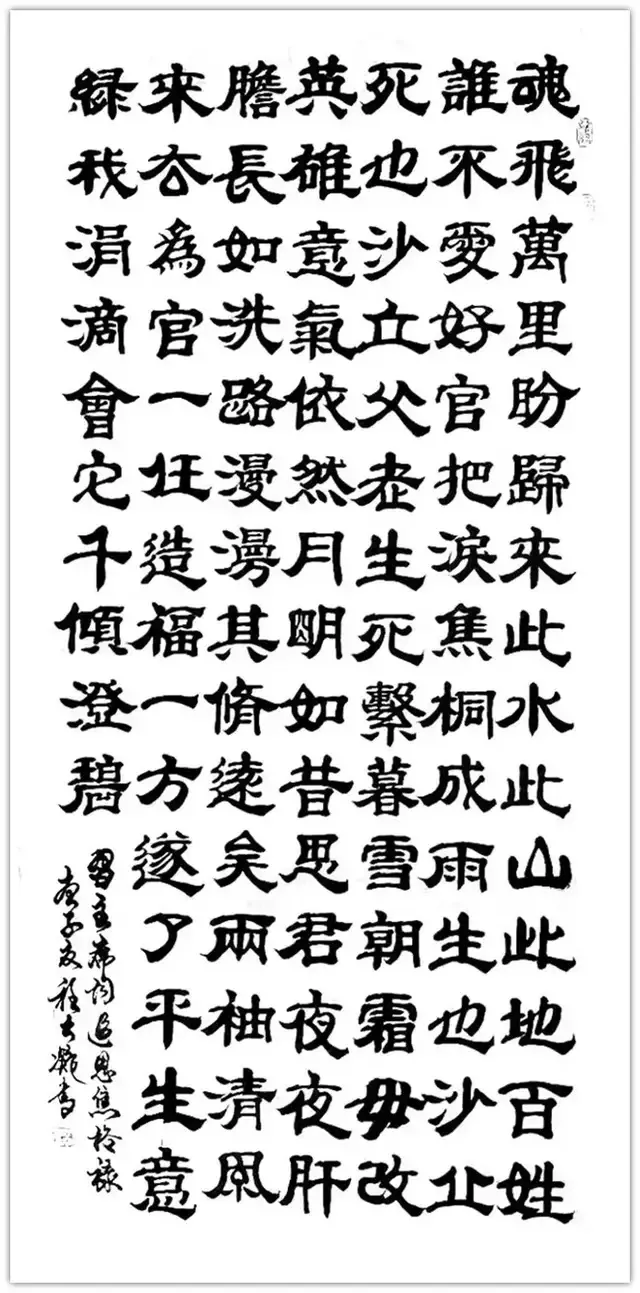 魂飛萬里盼歸來此水此山此地百姓
誰不愛好官把淚焦桐成雨生也沙丘
死也沙丘父老生死繫暮雪朝霜毋改
英雄意氣依然月明如昔思君夜夜肝
膽長如洗路漫漫其脩遠矣兩袖清風
來去爲官一任造福一方遂了平生意
綠我涓滴會它千傾澄碧
習主席詞追思焦裕祿
庚子夏程大書